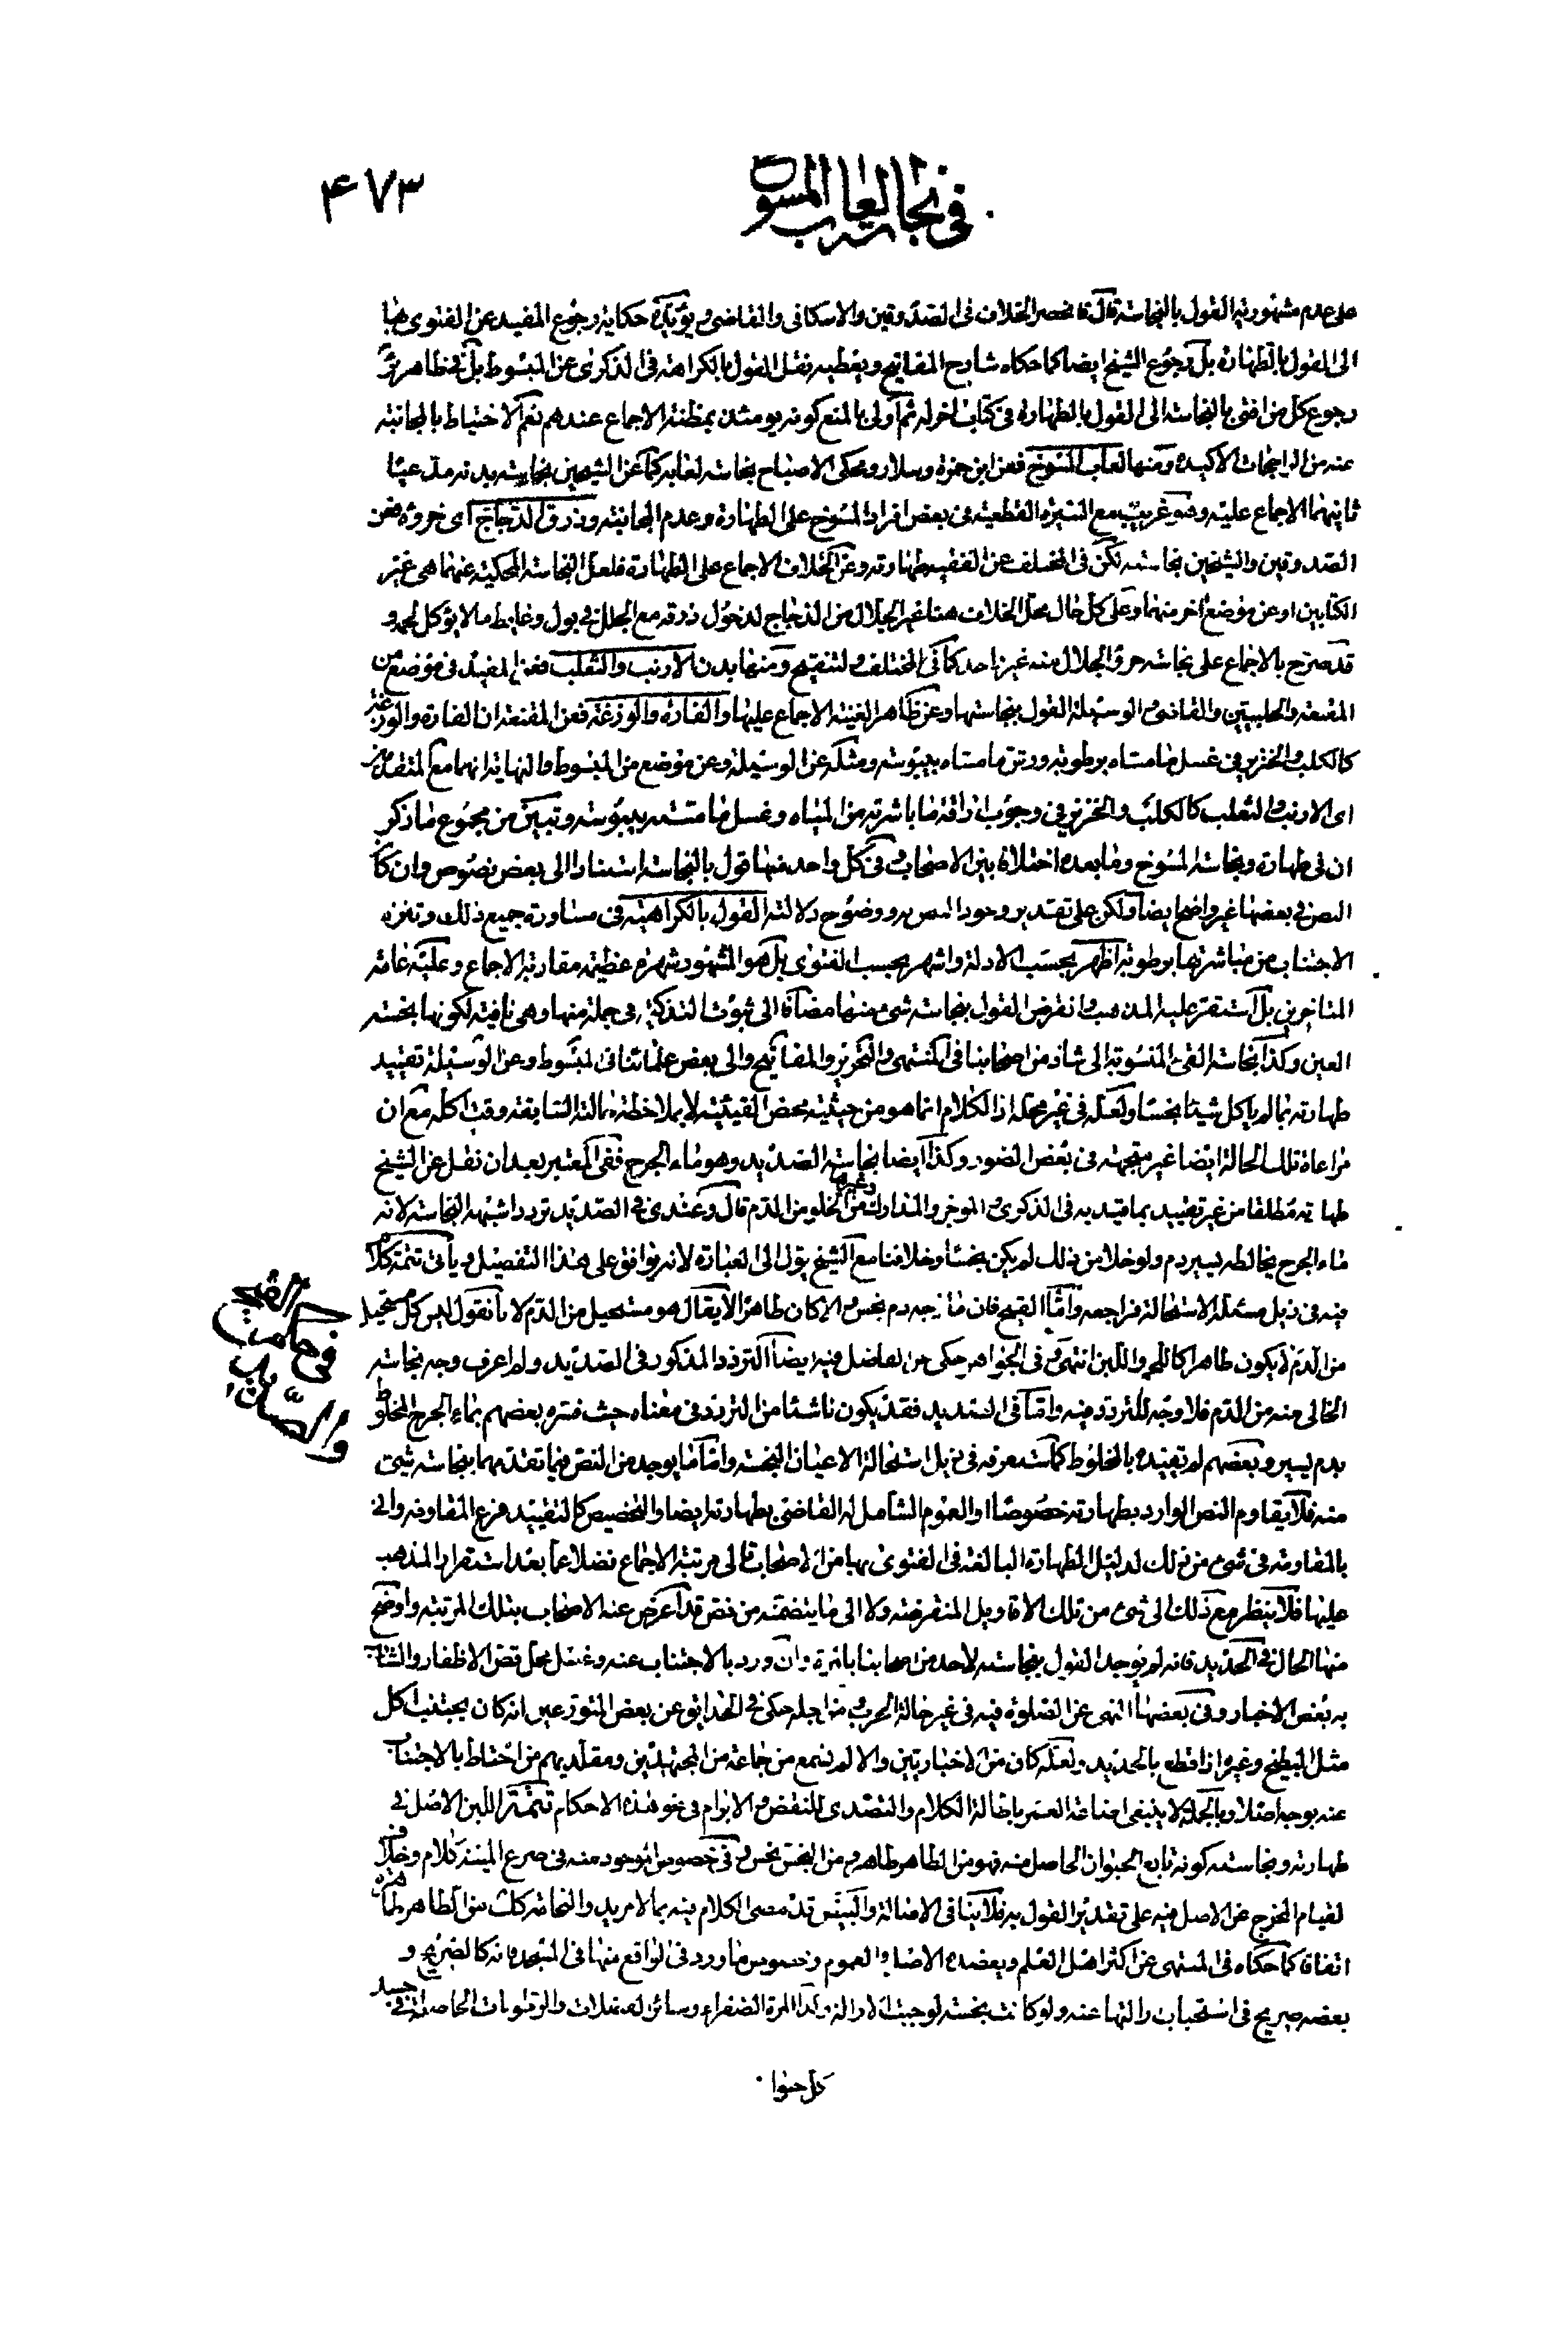 في نجاسة لعاب المسوخ
۴۷۳
على عدم مشهورية القول بالنجاسة قال فانحصر الخلاف في الصدوقين والاسكافي والقاضي ويؤيده حكاية رجوع المفيد عن الفتوى بها
الى القول بالطهارة بل رجوع الشيخ ايضا كما حكاه شارح المفاتيح ويعطيه نقل القول بالكراهة في الذكرى عن المبسوط بل في ظاهر
رجوع كل من افتى بالنجاسة الى القول بالطهارة في كتاب اخر له ثم اولى بالمنع كونه يومئذ بمظنة الاجماع عندهم نعم الاحتياط بالمجانبة
عنه من الراجحات الاكيدة ومنها لعاب المسوخ فعن ابن حمزة وسلار ومحكى الاصباح نجاسة لعابه كما عن الشيخين نجاسة بدنه مدعيا
ثانيهما الاجماع عليه وهو غريب مع السيرة القطعية في بعض افراد المسوخ على الطهارة وعدم المجانبة وذرق الدجاج اى خروه فعن
الصدوقين والشيخين نجاسته لكن في المختلف عن الفقيه طهارته وعن الخلاف الاجماع على الطهارة فلعل النجاسة المحكية عنهما هى غير
الكتابين او عن موضع اخر منهما وعلى كل حال محل الخلاف هنا غير الجلال من الدجاج لدخول ذرقه مع الجلل في بول وغايط ما لا يؤكل لحمه و
قد صرح بالاجماع على نجاسة خرؤ الجلال منه غير واحد كما في المختلف والتنقيح ومنها بدن الارنب والثعلب فعن المفيد في موضع من
المقنعة والحلبيين والقاضى والوسيلة القول بنجاستها وعن ظاهر الغنية الاجماع عليها والفارة والوزغة فعن المقنعة ان الفارة والوزغة
كالكلب والخنزير في غسل ما مستاه برطوبة ورش ما مستاه بيبوسة ومثله عن الوسيلة وعن موضع من المبسوط والنهاية انهما مع المتقدمين
اى الارنب والثعلب كالكلب والخنزير في وجوب اراقة ما باشرته من المياه وغسل ما مسته بيبوسة وتبين من مجموع ما ذكر
ان في طهارة ونجاسة المسوخ وما بعده اختلافا بين الاصحاب وفي كل واحد منها قول بالنجاسة استنادا الى بعض نصوص وان كان
النص في بعضها غير واضح ايضا ولكن على تقدير وجود النص ووضوح دلالته القول بالكراهية في مساورة جميع ذلك وتنزه
الاجتناب من مباشرتها برطوبة اظهر بحسب الادلة واشهر بحسب الفتوى بل هو المشهور شهرة عظيمة مقاربة الاجماع وعليه عامة
المتاخرين بل استقر عليه المذهب وانقرض القول بنجاسة شىء منها مضافا الى ثبوت التذكية في جملة منها وهى نافية لكونها نجسة
العين وكذا نجاسة القىء المنسوبة الى شاذ من اصحابنا في المنتهى والتحرير والمفاتيح والى بعض علمائنا في المبسوط وعن الوسيلة تقييد
طهارته بما لم ياكل شيئا نجسا ولعله في غير محله اذ الكلام انما هو من حيثية محض القيئية لا بملاحظة حالته السابقة وقت اكله مع ان
مراعاة تلك الحالة ايضا غير متجهة في بعض الصور وكذا ايضا نجاسة الصديد وهو ماء الجرح ففى المعتبر بعد ان نقل عن الشيخ
طهارته مطلقا من غير تقييد بما قيد به في الذكرى والموجز والمدارك وغيرها من الخلو من الدم قال وعندى في الصديد تردد اشبهه النجاسة لانه
ماء الجرح يخالطه يسير دم ولو خلا من ذلك لم يكن نجسا وخلافنا مع الشيخ يؤل الى العبارة لانه يوافق على هذا التفصيل ويأتى تتمة كلامه
فيه في ذيل مسئلة الاستحالة فراجعه واما القيح فان مازجه دم نجس والا كان طاهرا لا يقال هو مستحيل من الدم لانا نقول ليس كل مستحيل
من الدم لا يكون طاهرا كاللحم واللبن انتهى وفي الجواهر حكى عن الفاضل فيه ايضا التردد المذكور في الصديد ولم اعرف وجه نجاسة
الخالى منه من الدم فلا وجه للتردد فيه واما في الصديد فقد يكون ناشئا من التردد في معناه حيث فسره بعضهم بماء الجرح المخلوط
بدم يسير وبعضهم لم تقييده بالمخلوط كما ستعرفه في ذيل استحالة الاعيان النجسة واما ما يوجد من النص فيما تقدم مما بنجاسة شىء
منه فلا يقاوم النص الوارد بطهارته خصوصا او العموم الشامل له القاضى بطهارته ايضا والتخصيص كالتقييد فرع المقاومة وانى
بالمقاومة في شىء من ذلك لدليل الطهارة البالغة في الفتوى بها من الاصحاب الى مرتبة الاجماع فضلا عما بعد استقرار المذهب
عليها فلا ينظر مع ذلك الى شىء من تلك الاقاويل المنقرضة ولا الى ما يتضمنه من نص قد اعرض عنه الاصحاب بتلك المرتبة واوضح
منها الحال في الحديد فانه لم يوجد القول بنجاسته لاحد من اصحابنا بالمرة وان ورد بالاجتناب عنه وغسل محل قص الاظفار والشارب
به بعض الاخبار وفي بعضها النهى عن الصلوة فيه في غير حالة الحرب من اجله حكى في الحدائق عن بعض المتورعين انه كان يجتنب اكل
مثل البطيخ وغيره اذا قطع بالحديد ولعله كان من الاخباريين والا لم نسمع من جماعة من المجتهدين ومقلديهم من احتاط بالاجتناب
عنه بوجه اصلا وبالجملة لا ينبغى اضاعة العمر باطالة الكلام والتصدى للنقض والابرام في نحو هذه الاحكام تتمة اللبن الاصل في
طهارته ونجاسته كونه تابع الحيوان الحاصل منه فهو من الطاهر طاهر ومن النجس نجس وفي خصوص الموجود منه في ضرع الميتة كلام وخلاف
لقيام المخرج عن الاصل فيه على تقدير القول به فلا ينافي الاصالة والبيض قد مضى الكلام فيه بما لا مزيد والنخامة كك من الطاهر طاهرة
اتفاقا كما حكاه في المنتهى عن اكثر اهل العلم ويعضده الاصل والعموم وخصوص ما ورد في الواقع منها في المسجد فانه كالصريح و
بعضه صريح في استحباب دلكها عنه ولو كانت نجسة لوجبت الازالة وكذا المرة الصفراء وسائر الفضلات والرطوبات الحاصلة في جسد
كل حيوان
حكم القيح
في
والصابون